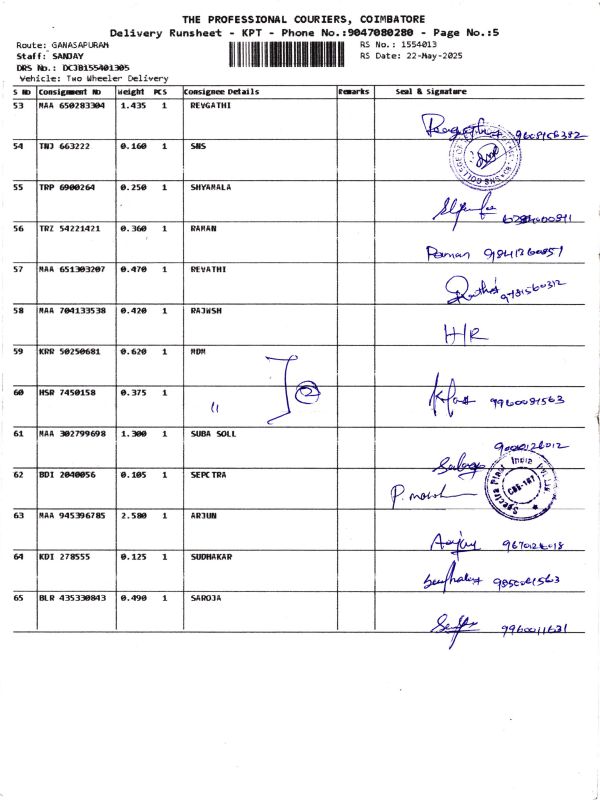 THE PROFESSIONAL COURIERS, COIMBATORE
Delivery Runsheet - KPT - Phone No.:9047080280 - Page No.:5
Route: GANASAPURAM RS No.: 1554013
Staff: SANJAY RS Date: 22-May-2025
DRS No.: DCJB155401305
Vehicle: Two Wheeler Delivery
S No Consignment No Weight PCS Consignee Details Remarks Seal & Signature
53 MAA 650283304 1.435 1 REVGATHI
9608156382
54 TNJ 663222 0.160 1 SNS
SNS COLLEGE OF
55 TRP 6900264 0.250 1 SHYAMALA
56 TRZ 54221421 0.360 1 RAMAN
Raman 9841260851
57 MAA 651303207 0.470 1 REVATHI
9781560312
58 MAA 704133538 0.420 1 RAJWSH
H/R
59 KRR 50250681 0.620 1 MDM
60 HSR 7450158 0.375 1
"
9960081563
61 MAA 302799698 1.300 1 SUBA SOLL
62 BDI 2040056 0.105 1 SEPCTRA
Spectra Plast India Pvt. Ltd.
CBE-107
63 MAA 945396785 2.580 1 ARJUN
64 KDI 278555 0.125 1 SUDHAKAR
65 BLR 435330843 0.490 1 SAROJA
9960011631